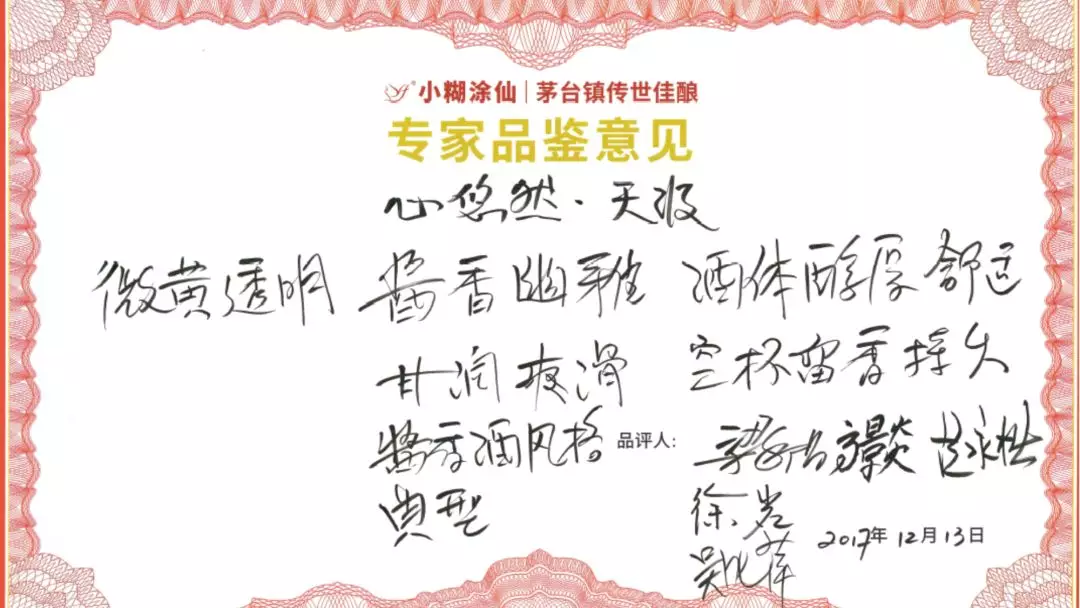 小糊涂仙 | 茅台镇传世佳酿
专家品鉴意见
心悠然·天酱
微黄透明 酱香幽雅 酒体醇厚舒适
甘润爽滑 空杯留香持久
酱香酒风格
典型
品评人:
徐岩
2017年12月13日